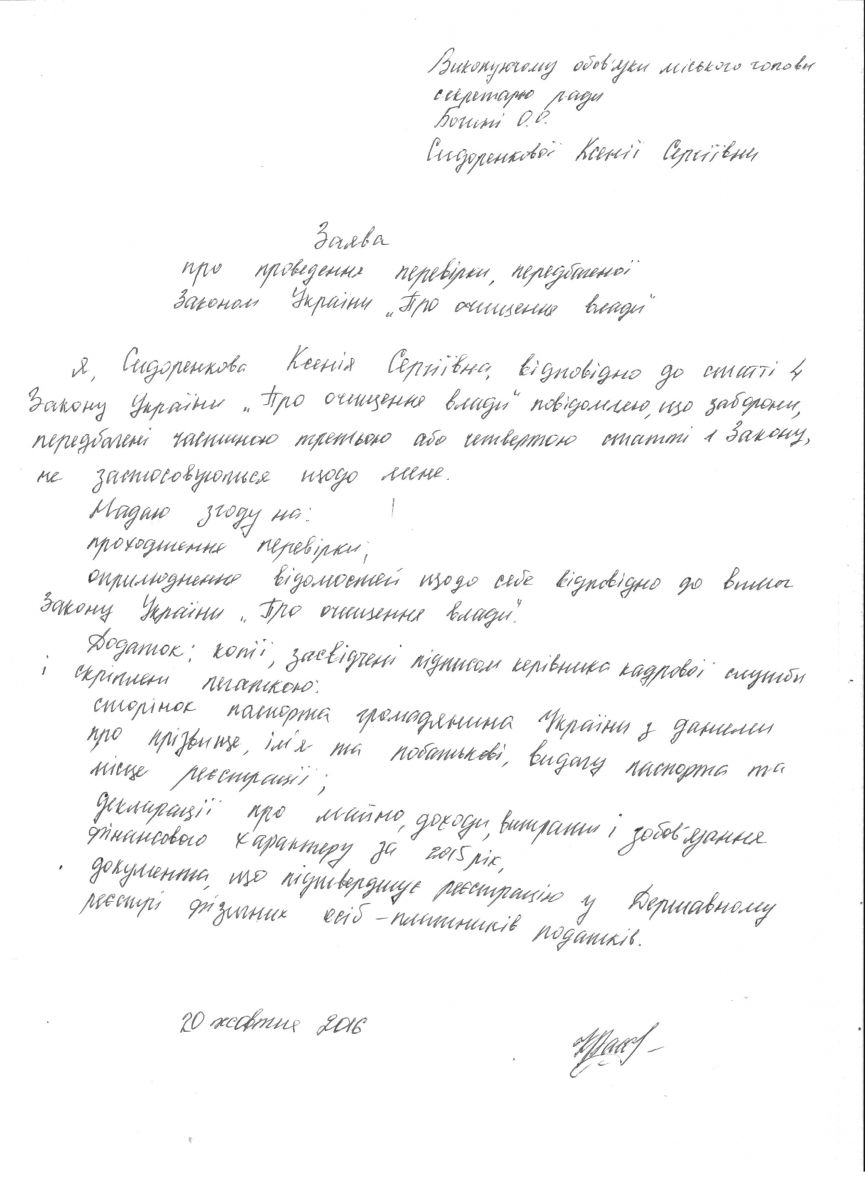 Виконуючому обов'язки міського голови
секретарю ради
Богині О.О.
Сидоренкової Ксенії Сергіївни
Заява
про проведення перевірки, передбаченої
Законом України „Про очищення влади"
Я, Сидоренкова Ксенія Сергіївна, відповідно до статті 4
Закону України „Про очищення влади" повідомляю, що заборони,
передбачені частиною третьою або четвертою статті 1 Закону,
не застосовуються щодо мене.
Надаю згоду на:
проходження перевірки;
оприлюднення відомостей щодо себе відповідно до вимог
Закону України „Про очищення влади".
Додаток: копії, засвідчені підписом керівника кадрової служби
і скріплені печаткою:
сторінок паспорта громадянина України з даними
про прізвище, ім'я та побатькові, видачу паспорта та
місце реєстрації;
декларації про майно, доходи, витрати і зобов'язання
фінансового характеру за 2015 рік,
документа, що підтверджує реєстрацію у Державному
реєстрі фізичних осіб – платників податків.
20 жовтня 2016